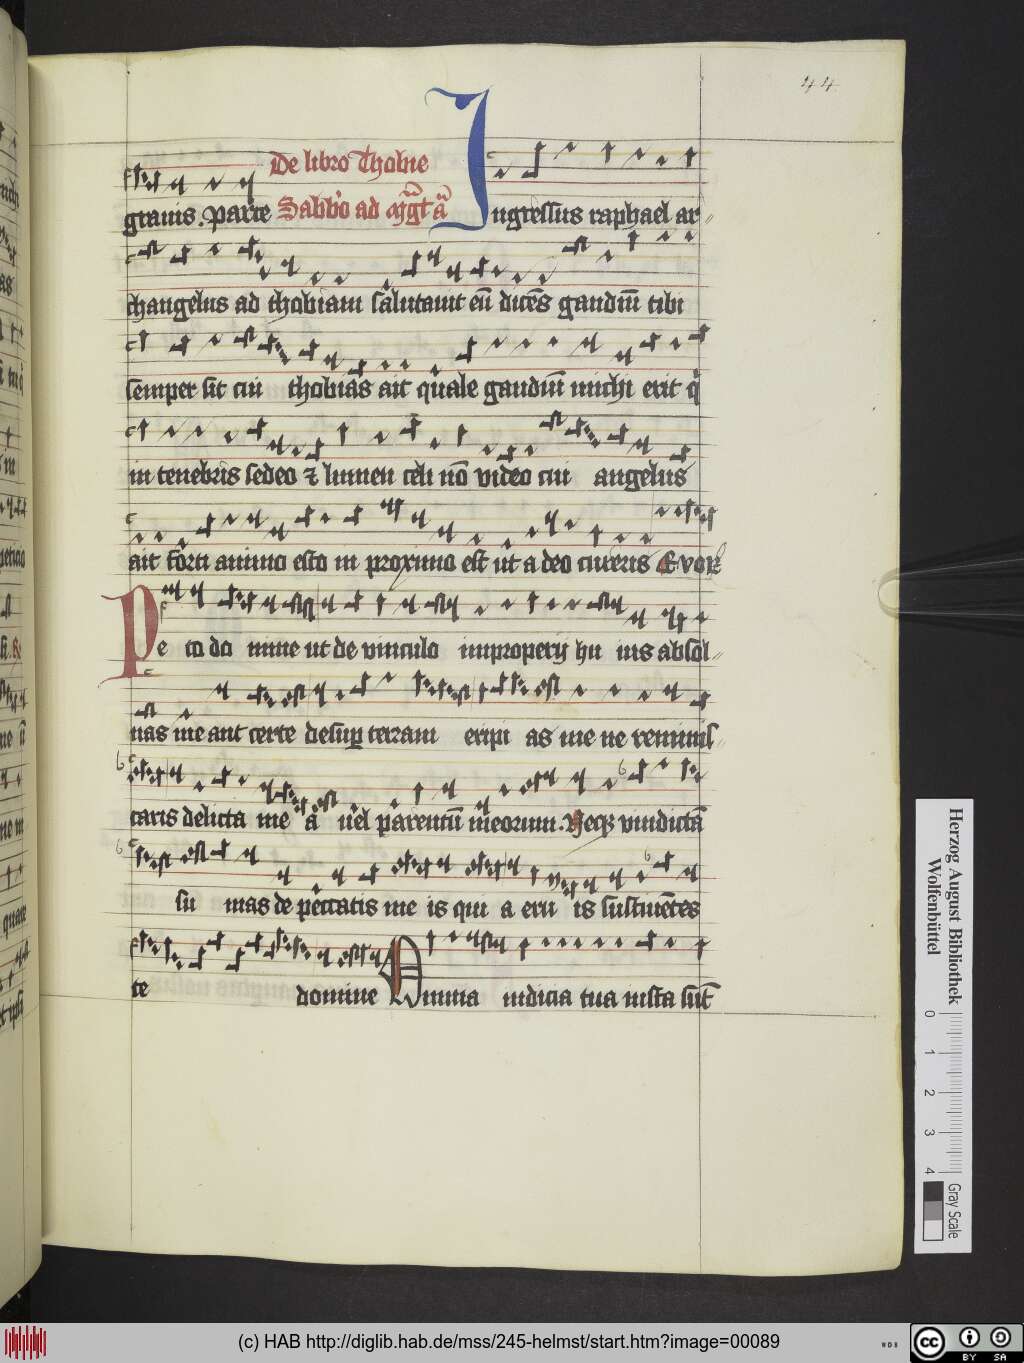 44
De libro Thobie
grauis. parce Sabb'o ad mg̃t ã Ingressus raphael ar
changelus ad thobiam salutauit eū dicēs gaudiū tibi
semper sit cui thobias ait quale gaudiū michi erit q̇
in tenebris sedeo ⁊ lumen celi nō video cui angelus
ait forti animo esto in proximo est ut a deo cureris Euoꝝ
Peto domine ut de vinculo improperij huius absol
uas me aut certe desuꝑ terram eripias me ne reminis
caris delicta mea uel parentū meorum. Neqꝫ vindictā
sumas de peccatis meis qui a eruis sustinētes
te domine Omnia iudicia tua iusta sūt
Herzog August Bibliothek
Wolfenbüttel
0 1 2 3 4
Gray Scale
(c) HAB http://diglib.hab.de/mss/245-helmst/start.htm?image=00089
WDB
cc BY SA